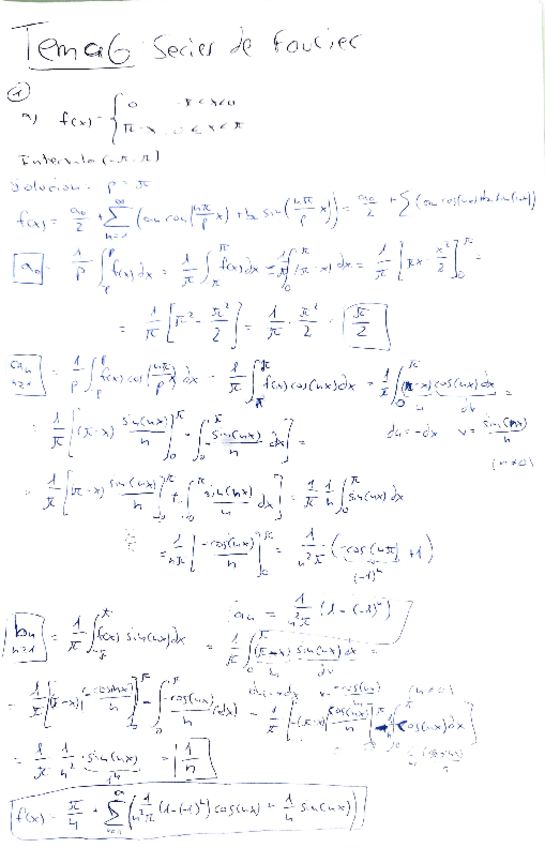 Tema 6 Series de Fourier
①
a) f(x) = { 0 -π < x < 0
π - x 0 < x < π
Intervalo (-π, π)
Solucion: p = π
f(x) = a₀/2 + ∑_{n=1}^{∞} (aₙ cos(nπ/p x) + bₙ sin(nπ/p x)) = a₀/2 + ∑ (aₙ cos(nx) + bₙ sin(nx))
a₀ = 1/p ∫_{-p}^{p} f(x) dx = 1/π ∫_{-π}^{π} f(x) dx = 1/π ∫_0^π (π - x) dx = 1/π [πx - x²/2]_0^π =
= 1/π [π² - π²/2] = 1/π · π²/2 = π/2
aₙ n≥1 = 1/p ∫_{-p}^{p} f(x) cos(nπ/p x) dx = 1/π ∫_{-π}^{π} f(x) cos(nx) dx = 1/π ∫_0^π (π - x) cos(nx) dx =
u dv
= 1/π [(π - x) sin(nx)/n]_0^π - ∫_0^π - sin(nx)/n dx] = du = -dx v = sin(nx)/n
(n ≠ 0)
= 1/π [(π - x) sin(nx)/n]_0^π + ∫_0^π sin(nx)/n dx] = 1/π 1/n ∫_0^π sin(nx) dx
= 1/nπ [-cos(nx)/n]_0^π = 1/n²π (-cos(nπ) + 1)
(-1)ⁿ
aₙ = 1/n²π (1 - (-1)ⁿ)
bₙ n≥1 = 1/π ∫_{-π}^{π} f(x) sin(nx) dx = 1/π ∫_0^π (π - x) sin(nx) dx =
u dv
du = -dx v = -cos(nx)/n (n ≠ 0)
= 1/π [(π - x) (-cos(nx)/n)]_0^π - ∫_0^π -cos(nx)/n (-dx) = 1/π [-(π - x) cos(nx)/n]_0^π - 1/n ∫_0^π cos(nx) dx]
= 1/n
f(x) = π/4 + ∑_{n=1}^{∞} (1/n²π (1 - (-1)ⁿ) cos(nx) + 1/n sin(nx))